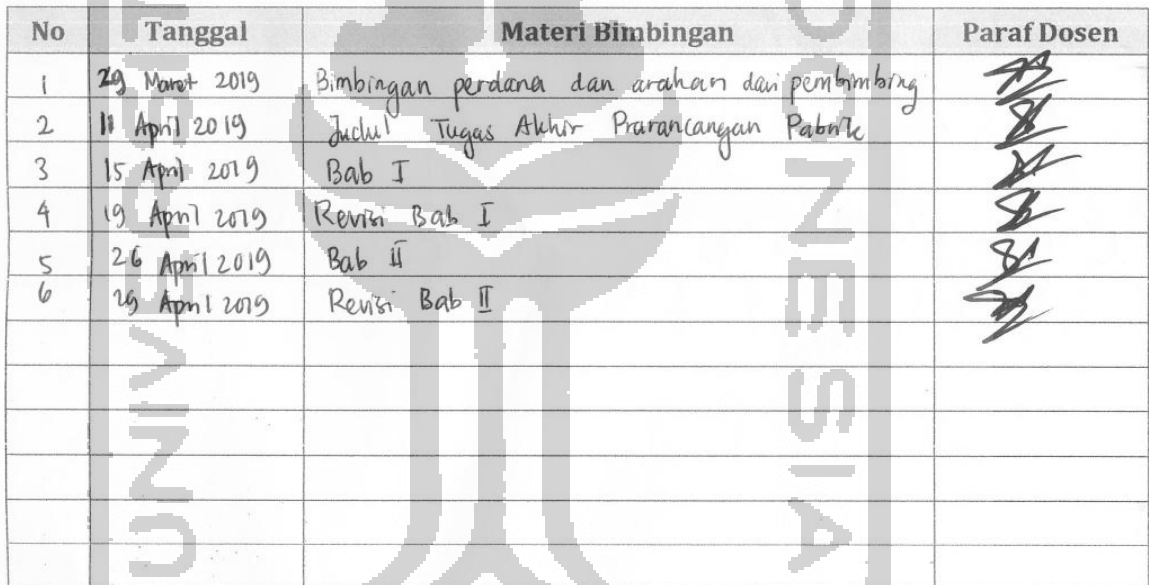 No Tanggal Materi Bimbingan Paraf Dosen
1 29 Maret 2019 Bimbingan perdana dan arahan dari pembimbing
2 11 April 2019 Judul Tugas Akhir Prarancangan Pabrik
3 15 April 2019 Bab I
4 19 April 2019 Revisi Bab I
5 26 April 2019 Bab II
6 29 April 2019 Revisi Bab II